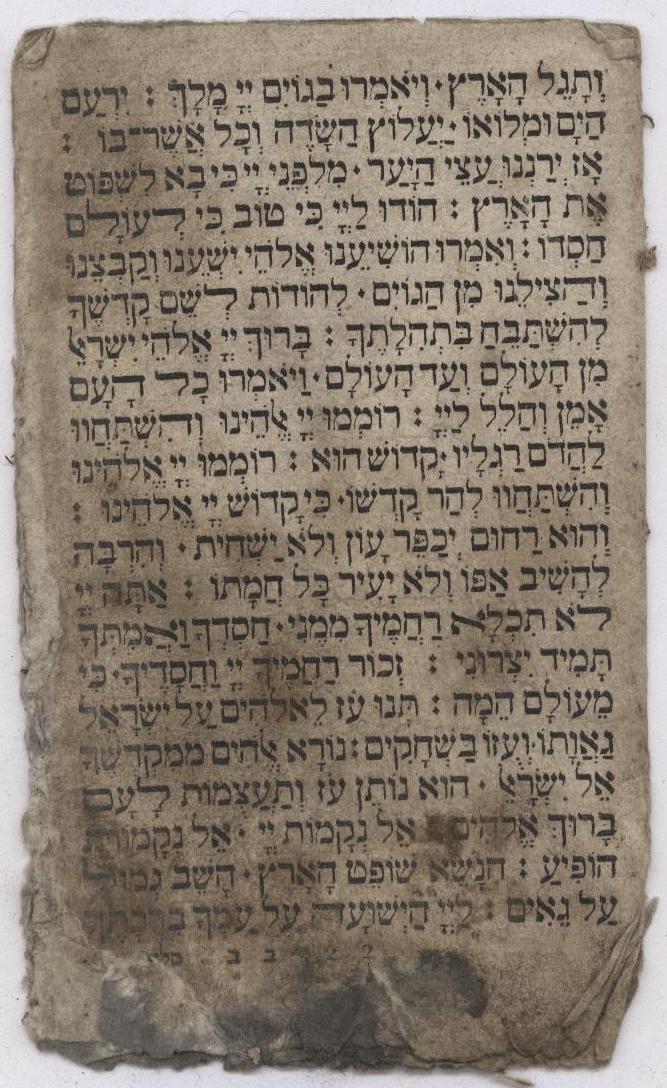 וְתָגֵל הָאָרֶץ · וְיֹאמְרוּ בַגּוֹיִם יְיָ מָלָךְ : יִרְעַם
הַיָּם וּמְלוֹאוֹ · יַעֲלוֹץ הַשָּׂדֶה וְכָל אֲשֶׁר־בּוֹ :
אָז יְרַנְּנוּ עֲצֵי הַיָּעַר · מִלִּפְנֵי יְיָ כִּי בָא לִשְׁפּוֹט
אֶת הָאָרֶץ : הוֹדוּ לַיְיָ כִּי טוֹב כִּי לְעוֹלָם
חַסְדּוֹ : וְאִמְרוּ הוֹשִׁיעֵנוּ אֱלֹהֵי יִשְׁעֵנוּ וְקַבְּצֵנוּ
וְהַצִּילֵנוּ מִן הַגּוֹיִם · לְהוֹדוֹת לְשֵׁם קָדְשֶׁךָ
לְהִשְׁתַּבֵּחַ בִּתְהִלָּתֶךָ : בָּרוּךְ יְיָ אֱלֹהֵי יִשְׂרָאֵל
מִן הָעוֹלָם וְעַד הָעוֹלָם · וַיֹּאמְרוּ כָל הָעָם
אָמֵן וְהַלֵּל לַיְיָ : רוֹמְמוּ יְיָ אֱלֹהֵינוּ וְהִשְׁתַּחֲווּ
לַהֲדֹם רַגְלָיו · קָדוֹשׁ הוּא : רוֹמְמוּ יְיָ אֱלֹהֵינוּ
וְהִשְׁתַּחֲווּ לְהַר קָדְשׁוֹ · כִּי קָדוֹשׁ יְיָ אֱלֹהֵינוּ :
וְהוּא רַחוּם יְכַפֵּר עָוֹן וְלֹא יַשְׁחִית · וְהִרְבָּה
לְהָשִׁיב אַפּוֹ וְלֹא יָעִיר כָּל חֲמָתוֹ : אַתָּה יְיָ
לֹא תִכְלָא רַחֲמֶיךָ מִמֶּנִּי · חַסְדְּךָ וַאֲמִתְּךָ
תָּמִיד יִצְּרוּנִי : זְכוֹר רַחֲמֶיךָ יְיָ וַחֲסָדֶיךָ · כִּי
מֵעוֹלָם הֵמָּה : תְּנוּ עֹז לֵאלֹהִים עַל יִשְׂרָאֵל
גַּאֲוָתוֹ · וְעֻזּוֹ בַּשְּׁחָקִים : נוֹרָא אֱלֹהִים מִמִּקְדָּשֶׁךָ
אֵל יִשְׂרָאֵל · הוּא נוֹתֵן עֹז וְתַעֲצֻמוֹת לָעָם
בָּרוּךְ אֱלֹהִים : אֵל נְקָמוֹת יְיָ · אֵל נְקָמוֹת
הוֹפִיעַ : הִנָּשֵׂא שׁוֹפֵט הָאָרֶץ · הָשֵׁב גְּמוּל
עַל גֵּאִים : לַיְיָ הַיְשׁוּעָה עַל עַמְּךָ בִרְכָתֶךָ